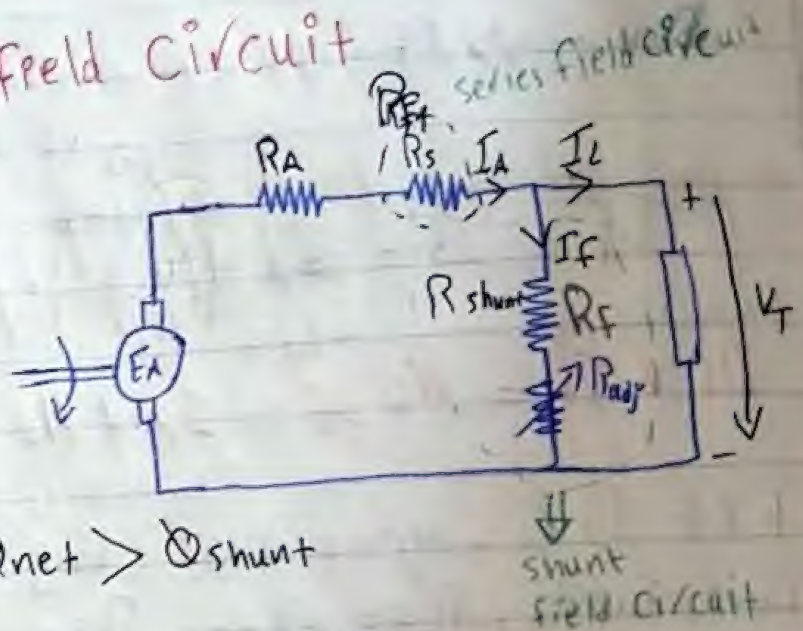 field Circuit
series field circuit
RA
Rs
IA
IL
+
If
R shunt
Rf
Radj
EA
VT
-
net > Φshunt
shunt
field Circuit